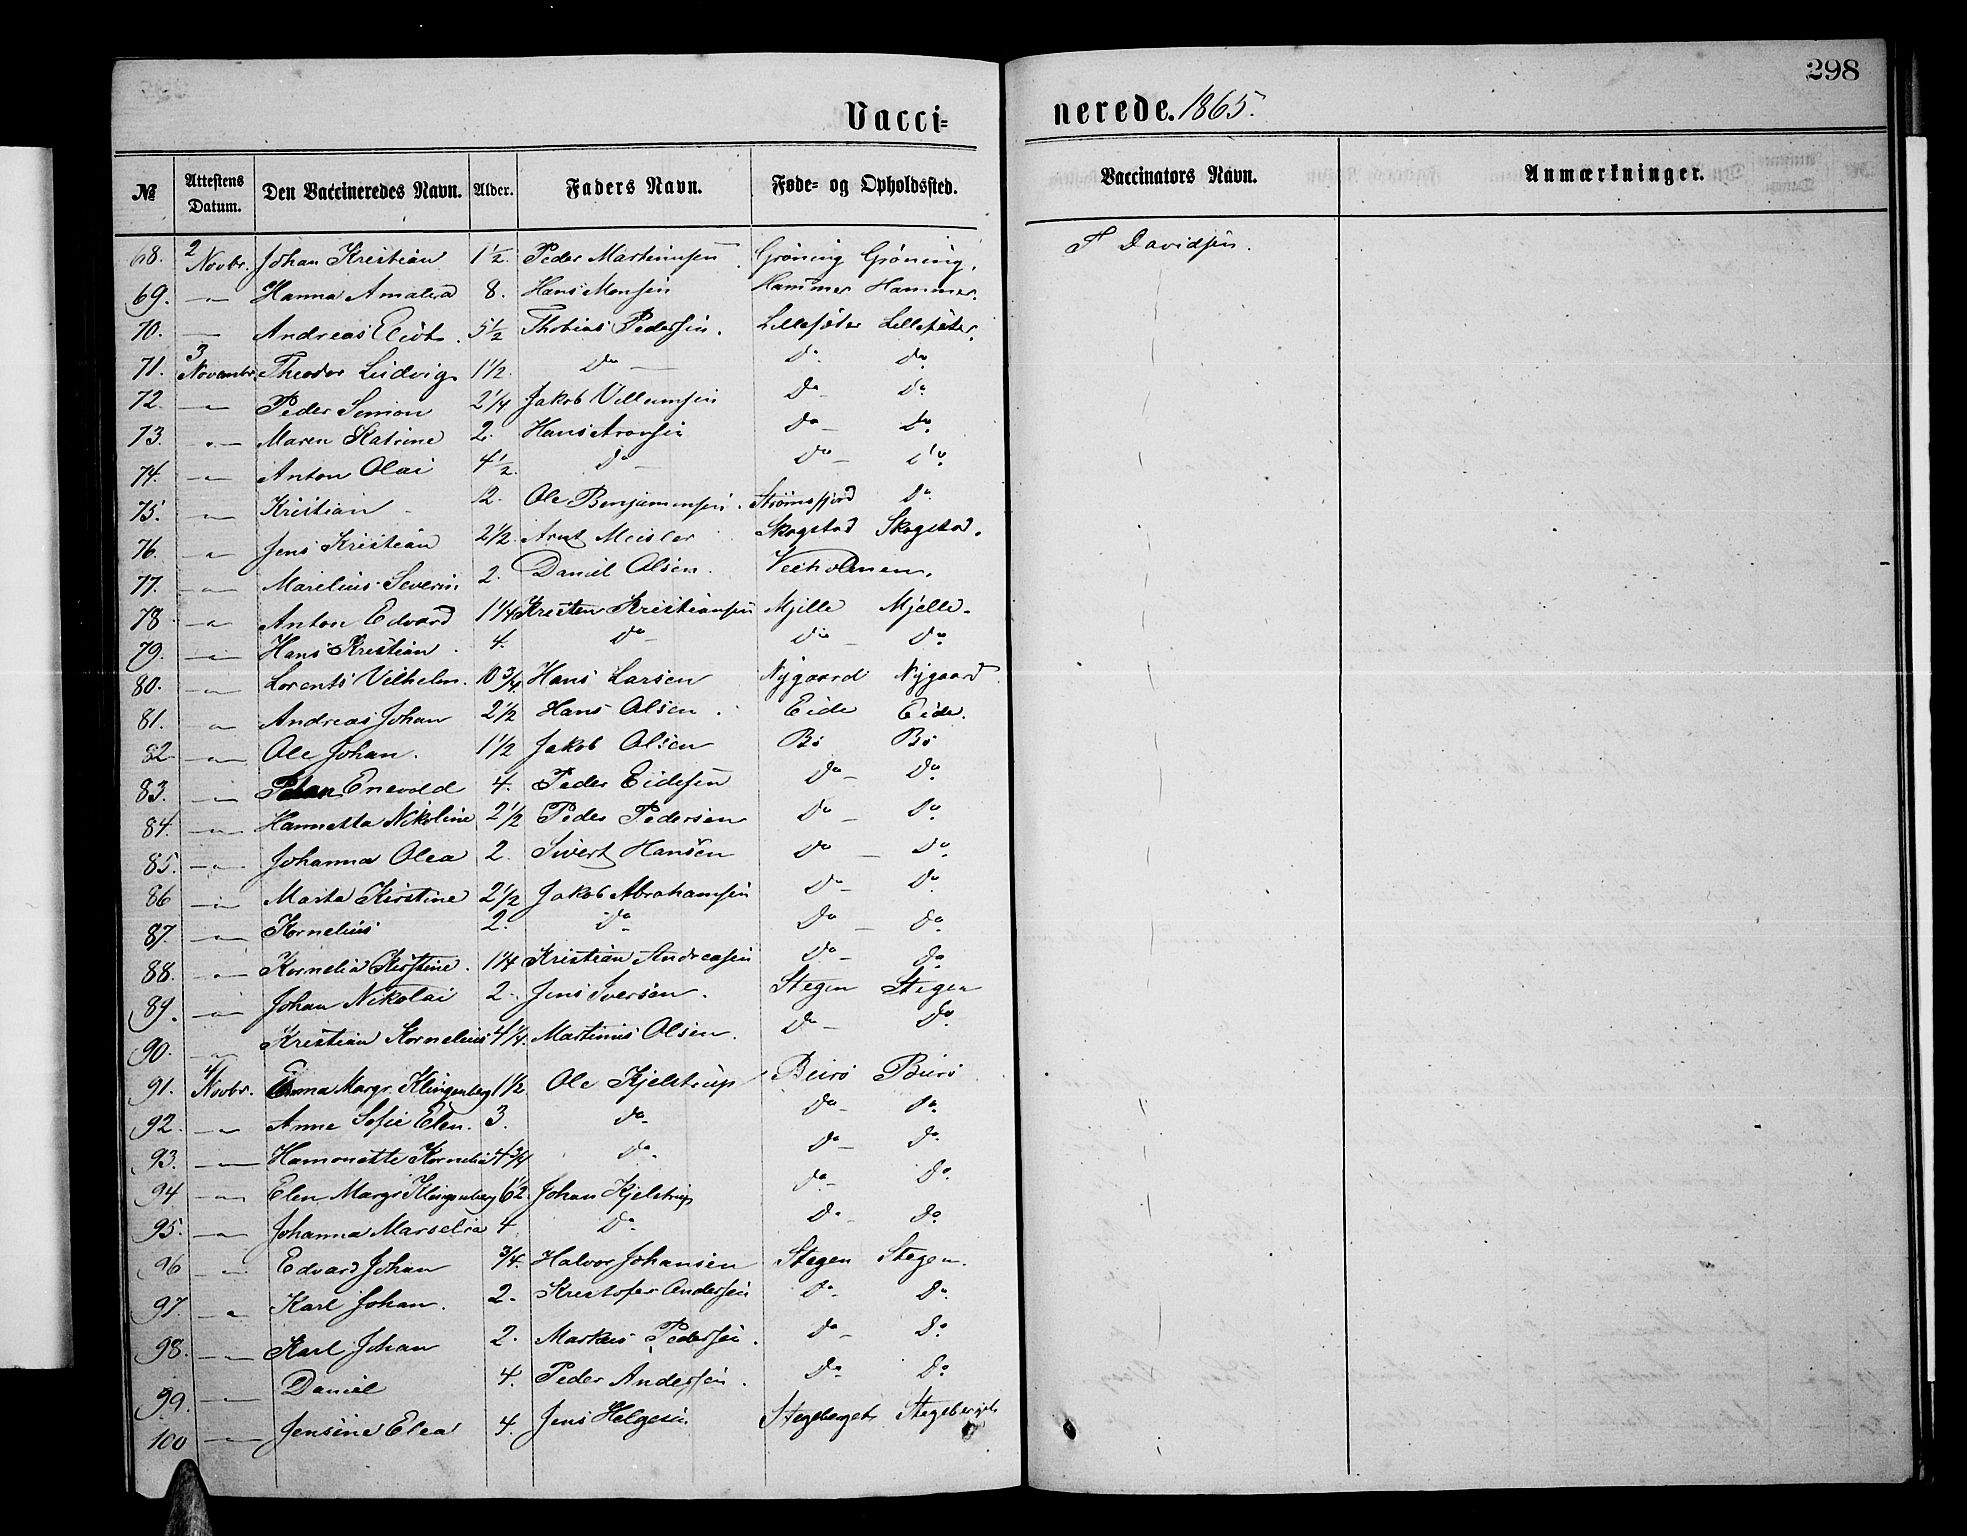 298
Vacci- nerede. 1865.
№ Attestens Datum. Den Vaccineredes Navn. Alder. Faders Navn. Føde- og Opholdssted. Vaccinators Navn. Anmærkninger.
68. 2 Novbr. Johan Kristian 1½. Peder Martinusen Grøning Grøning. F Davidsen.
69. — Hanna Amalia 8. Hans Monsen Hammer Hammer.
70. — Andreas 5½ Thobias Pedersen. Lillesæter Lillesæter.
71. 3 Novembr. Theodor Ludvig 1½. Do Do Do
72. — Peder Simon 2¼ Jakob Villumsen Do Do
73. — Maren Katrine 2. Hans Aronsen Do Do
74. — Anton Olai 4½. Do Do Do
75. — Kristian 12. Ole Benjaminsen. Strømsfjord Do
76. — Jens Kristian 2½. Arnt Meisler Skogstad Skogstad.
77. — Marelius Severin 2. Daniel Olsen. Veiholmen.
78 — Anton Edvard 1¼ Kristen Kristiansen Mjelle Mjelle.
79. — Hans Kristian 4. Do Do Do
80. — Lorents Vilhelm. 10¾ Hans Larsen Nygaard Nygaard
81. — Andreas Johan 2½ Hans Olsen. Eide Eide.
82 — Ole Johan. 1½ Jakob Olsen Bø Bø
83. — Enevold 4. Peder Eidesen Do Do
84. — Hannetta Nikoline 2½ Peder Pedersen Do Do
85. — Johanna Olea 2. Sivert Hansen Do Do
86 — Marta Kirstine 2½ Jakob Abrahamsen Do Do
87. — Kornelius 2. Do Do Do
88. — Kornelia Kirstine. 1¼ Kristian Andreasen Do Do
89. — Johan Nikolai 2. Jens Iversen. Stegen Stegen
90. — Kristian Kornelius 4¼. Martinus Olsen. Do Do
91. 4 Novbr. Emma Margr. Klingenberg 1½ Ole Kjelstrup
92. — Anne Sofie Elen. 3. Do Do Do
93. — Hamonette Kornelia 4¾ Do Do Do
94 — Elen Margr Klingenberg 6½. Johan Kjelstrup Do Do
95. — Johanna Marselia 4 Do Do Do
96 — Edvard Johan ¾. Halvor Johansen Stegen Stegen.
97. — Karl Johan. 2. Kristofer Andersen Do Do
98. — Karl Johan 2. Markus Pedersen. Do Do
99. — Daniel 4. Peder Andersen. Do Do
100 — Jensine Elea 4. Jens Helgesen Stegeberget Stegeberget